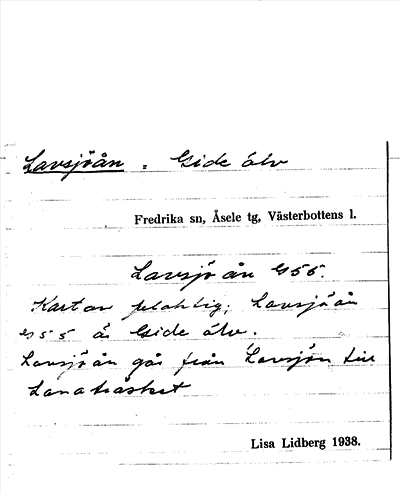 Lavsjöån = Gide älv
Fredrika sn, Åsele tg, Västerbottens l.
Lavsjöån G55.
Kartan felaktig; Lavsjöån
G55 är Gide älv.
Lavsjöån går från Lavsjön till
Lanaträsket
Lisa Lidberg 1938.